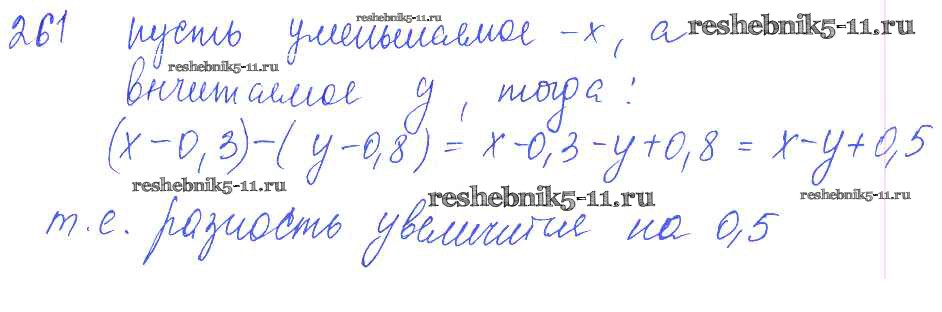 reshebnik5-11.ru
261 пусть уменьшаемое - x, а reshebnik5-11.ru
reshebnik5-11.ru
вычитаемое y, тогда:
(x-0,3)-(y-0,8) = x-0,3-y+0,8 = x-y+0,5
reshebnik5-11.ru reshebnik5-11.ru reshebnik5-11.ru
т.е. разность увеличится на 0,5